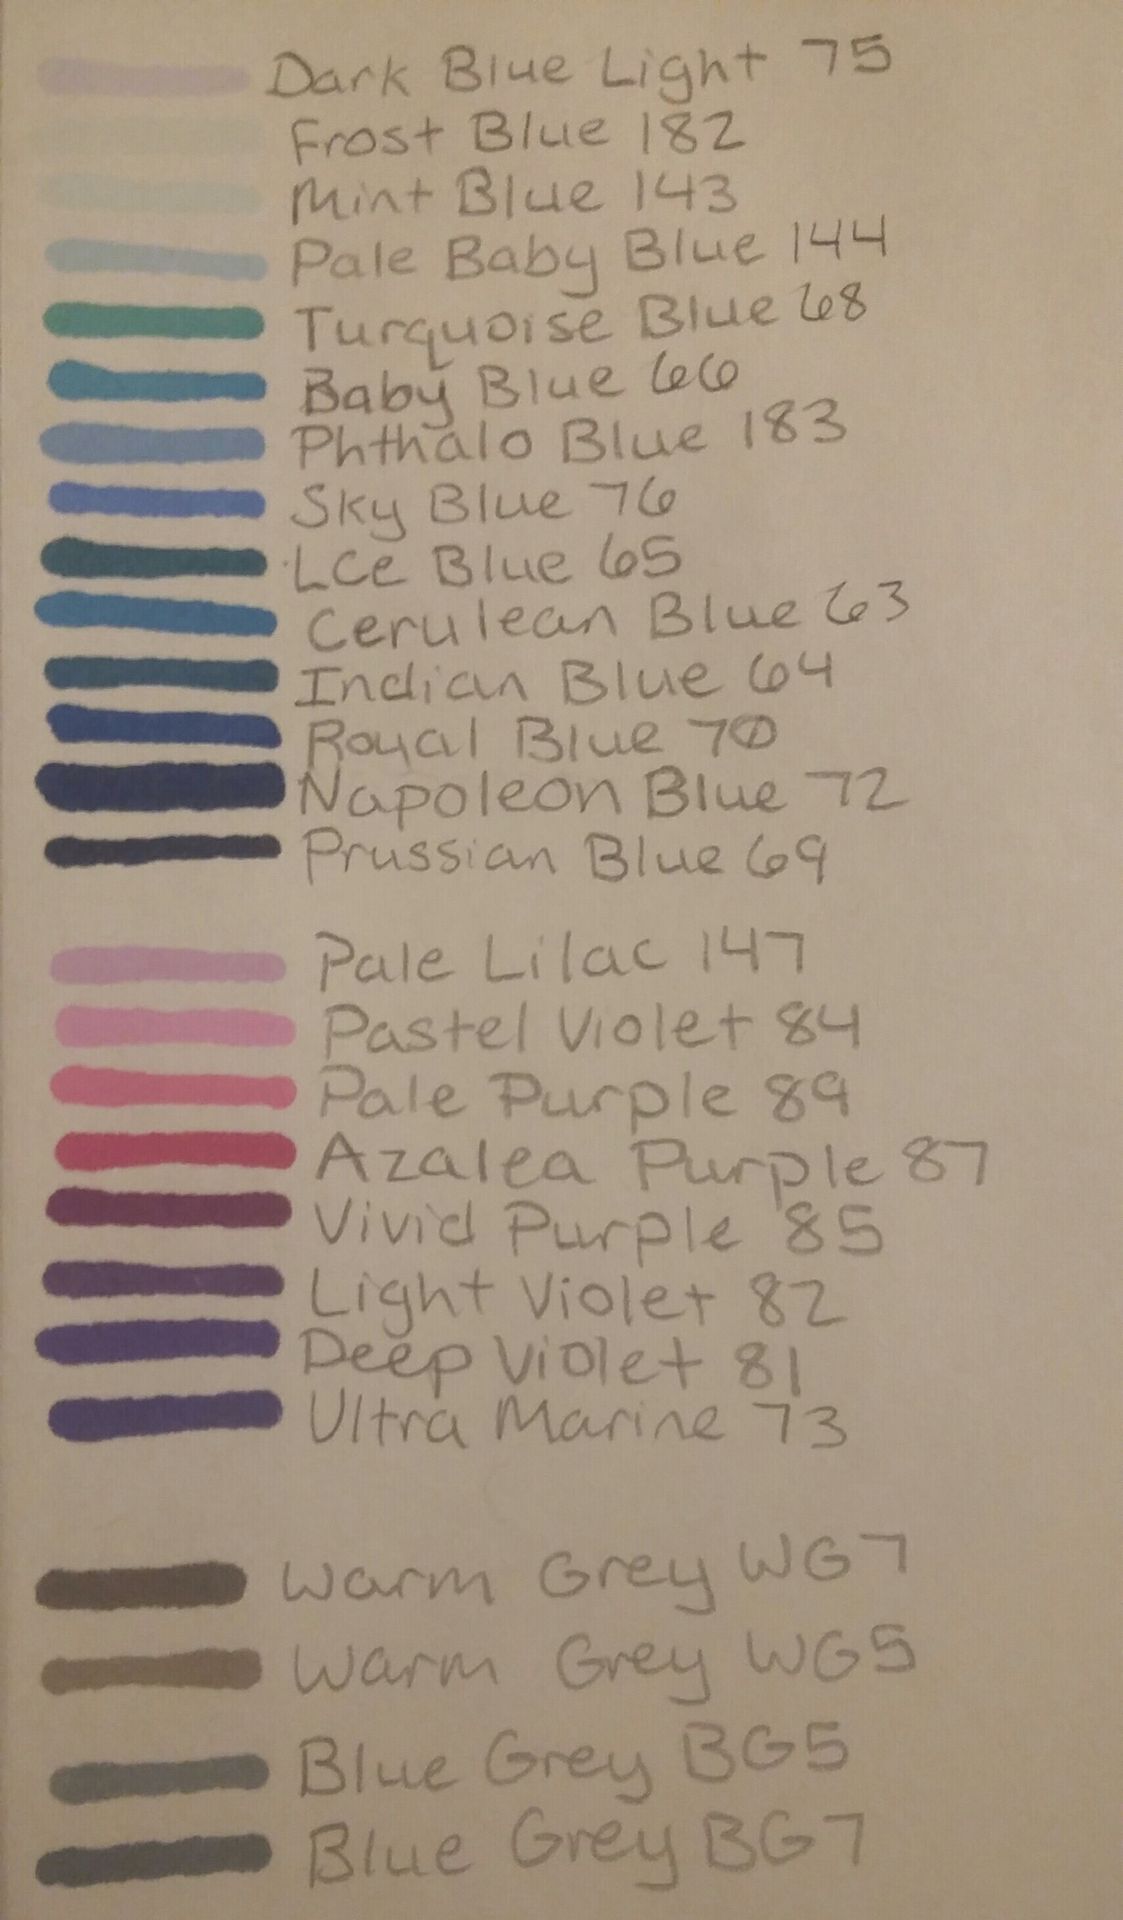 Dark Blue Light 75
Frost Blue 182
Mint Blue 143
Pale Baby Blue 144
Turquoise Blue 68
Baby Blue 66
Phthalo Blue 183
Sky Blue 76
LCe Blue 65
Cerulean Blue 63
Indian Blue 64
Royal Blue 70
Napoleon Blue 72
Prussian Blue 69
Pale Lilac 147
Pastel Violet 84
Pale Purple 89
Azalea Purple 87
Vivid Purple 85
Light Violet 82
Deep Violet 81
Ultra Marine 73
Warm Grey WG7
Warm Grey WG5
Blue Grey BG5
Blue Grey BG7